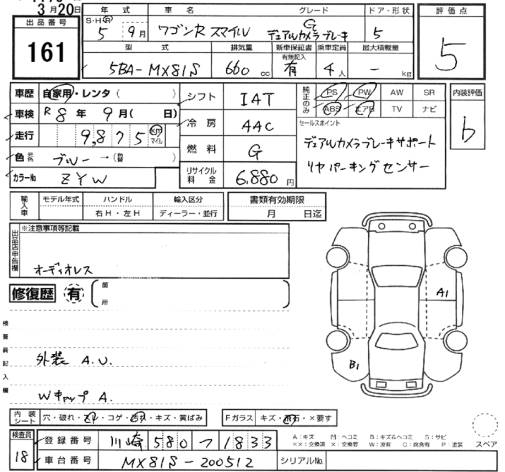 3月20日
出品番号
161
年式 車名 グレード ドア・形状 評価点
S・H・R 5年 9月 ワゴンR スマイル G デュアルカメラブレーキ 5 5
型式 排気量 新車保証書 乗車定員 最大積載量
有無記入
5BA-MX81S 660cc 有 4人 - kg
車歴 自家用・レンタ( )
車検 R8年 9月( 日)
走行 9,875 km マイル
色 ブルー→(替)
カラーNo ZYW
シフト IAT
冷房 AAC
燃料 G
リサイクル料金 6,880円
純正のみ PS PW AW SR
ABS エアB TV ナビ
セールスポイント
デュアルカメラブレーキサポート
リヤパーキングセンサー
内装評価
b
輸入車 モデル年式 ハンドル 輸入区分
右H・左H ディーラー・並行
書類有効期限
月 日迄
出品店申告欄
※注意事項等記載
オーディオレス
修復歴 有 箇所
検査員記入欄
外装 A.U.
Wキャップ A.
A1
B1
内装シート 穴・破れ・コゲ・キズ・黄ばみ
Fガラス キズ・飛石・×要す
スペア
検査員
18
登録番号 川崎 580 つ 1833
車台番号 MX81S-200512
シリアルNo.
A:キズ M:ヘコミ B:キズ&ヘコミ S:サビ
××:交換済 ×:交換要 W:波有 C:腐食有 P:塗装